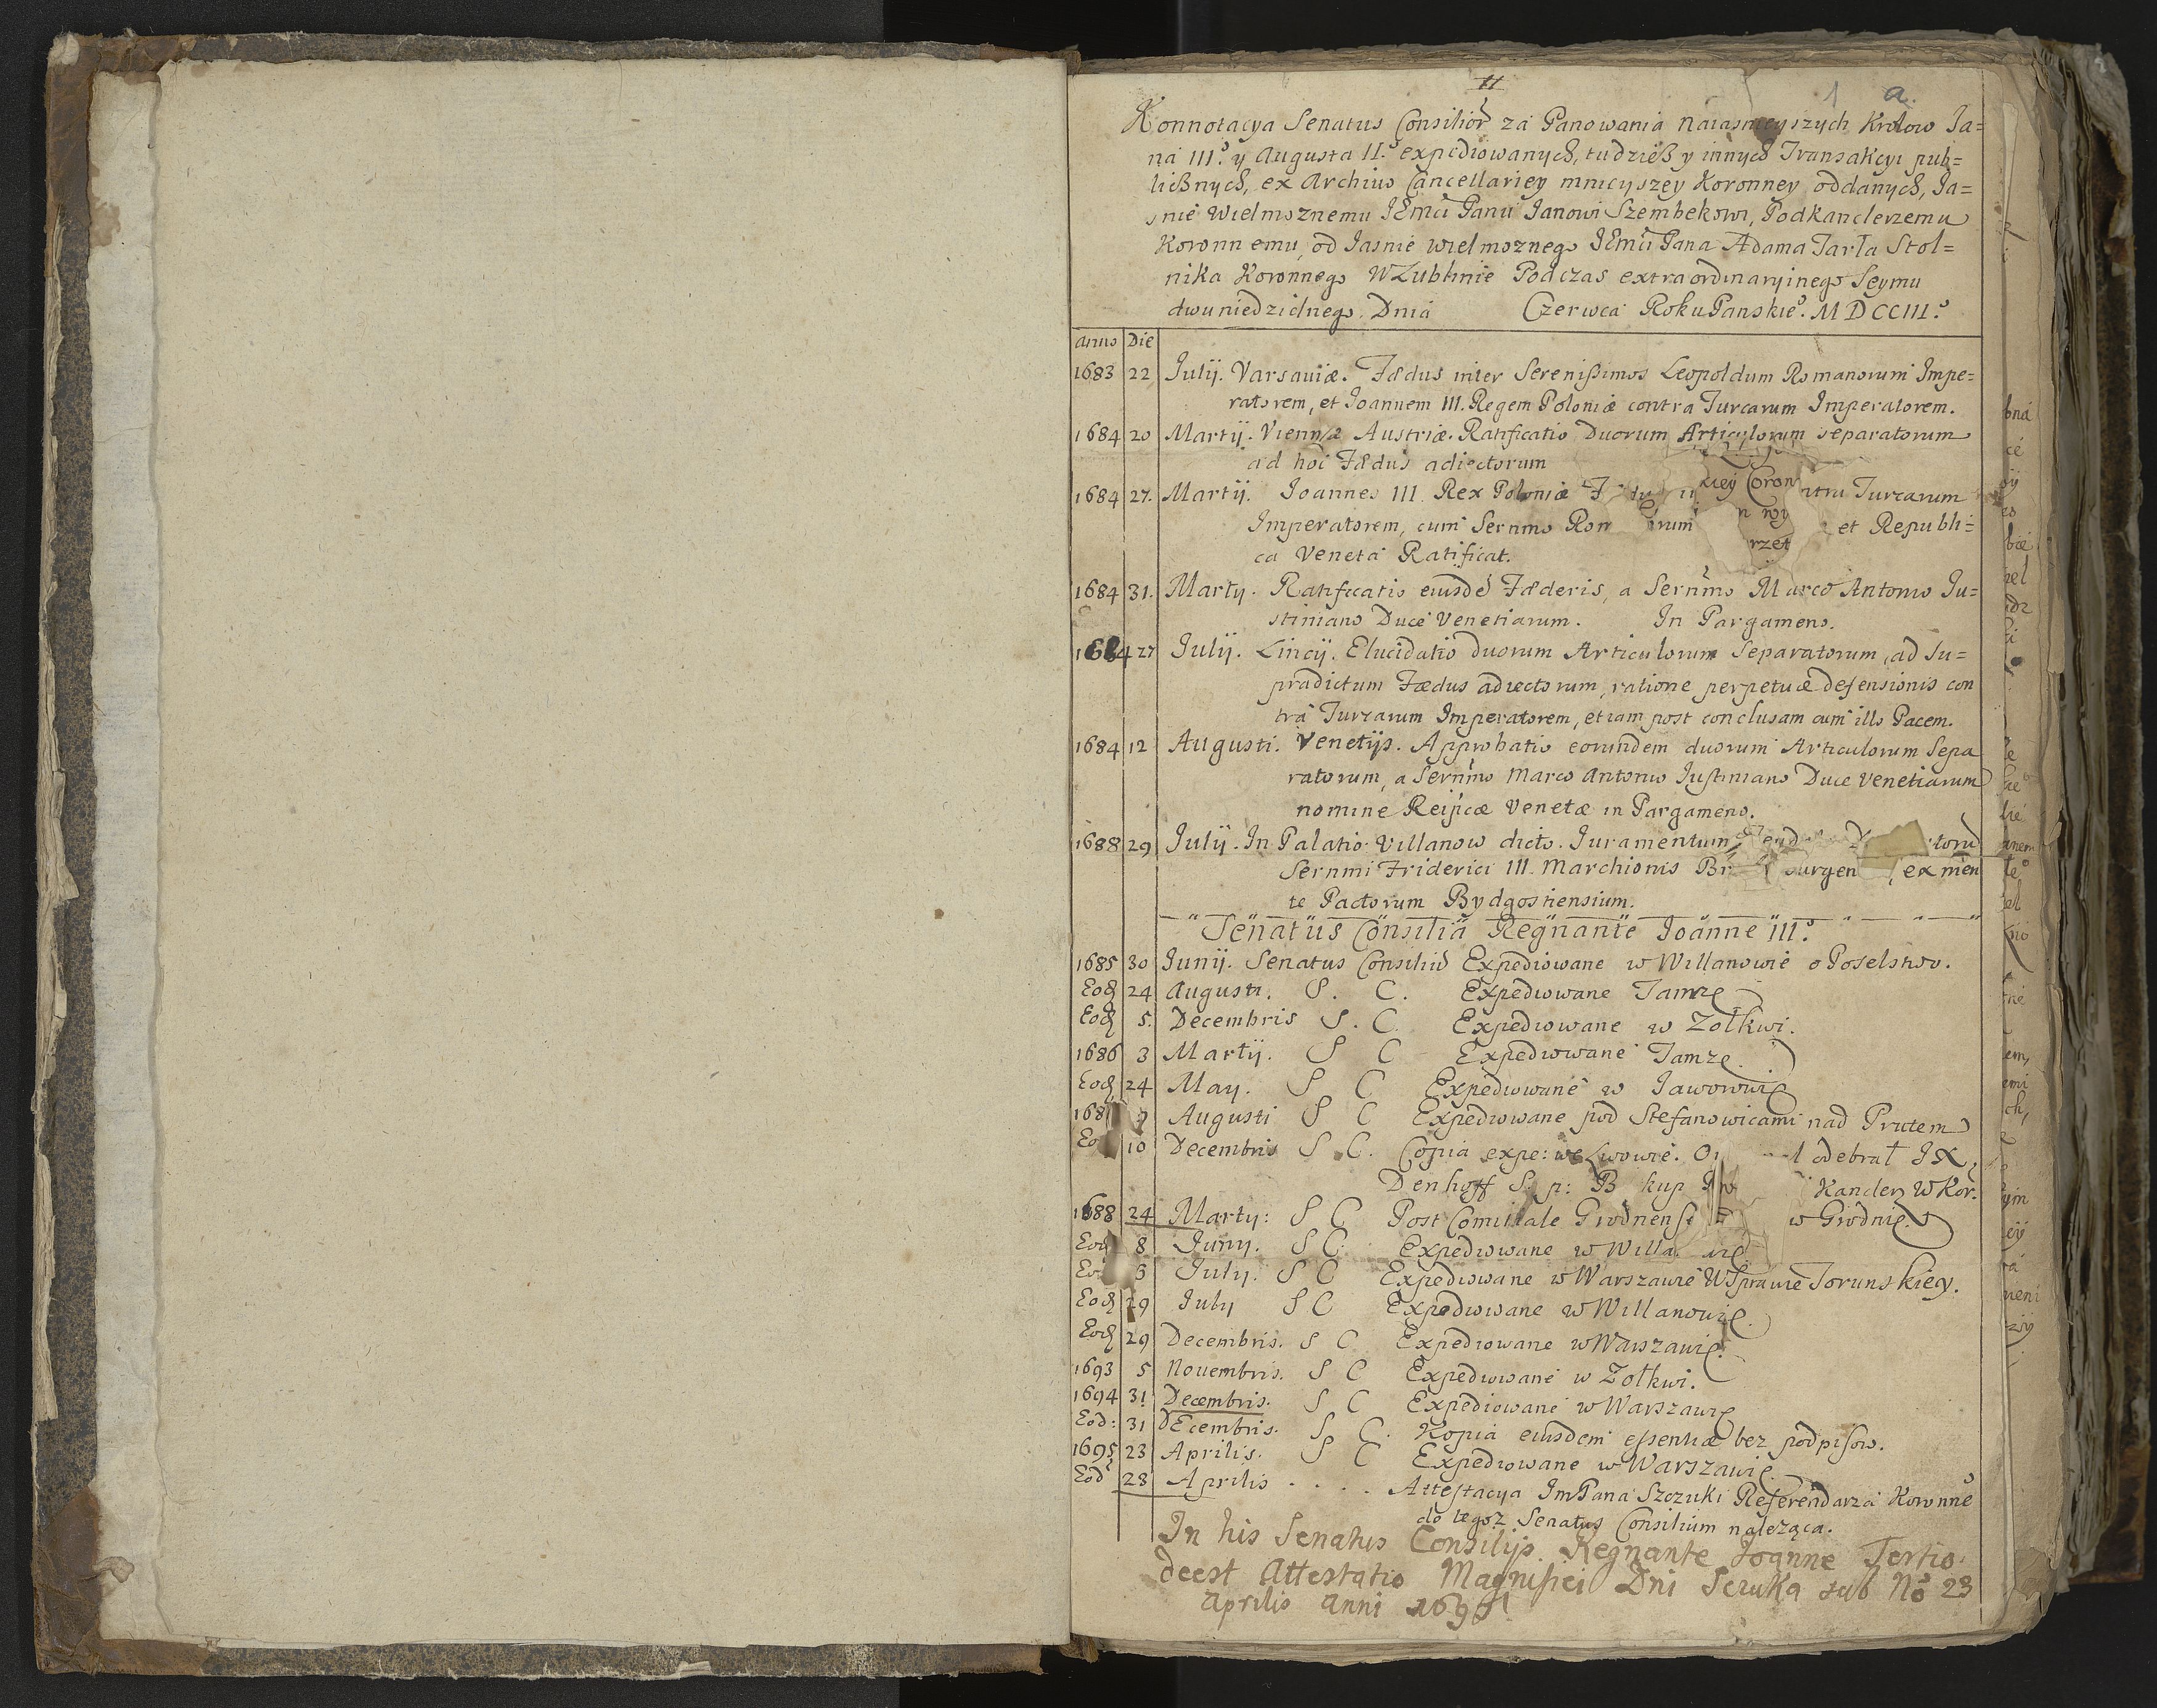 11
1 a.
Konnotacya Senatus Consilior za Panowania Naiasnieyszych Krolow Ja=
na III.° y Augusta II.° expediowanych, tudzieß y innych Transakcyi pub=
lißnych, ex Archivo Cancellariey mnieyszey Koronney oddanych, Ja=
snie Wielmoznemu JEmci Panu Janowi Szembekowi, Podkanclerzemu
Koronnemu, od Jasnie wielmoznego JEmci Pana Adama Tarła Stol=
nika Koronnego W Lublinie Podczas extraordinaryinego Seymu
dwuniedzielnego. Dnia Czerwca Roku Panskie°. MDCCIII.°
Anno Die
1683 22 Julij. Varsaviæ. Fædus inter Serenißimos Leopoldum Romanorum Impe=
ratorem, et Joannem III. Regem Poloniæ contra Turcarum Imperatorem.
1684 20 Martij. Viennæ Austriæ. Ratificatio Duorum Articulorum separatorum
ad hoc Fædus adiectorum
1684 27. Martij. Joannes III. Rex Poloniæ kiey Coron Turcarum
Imperatorem, cum Sernmo et Republi=
ca Veneta Ratificat. rzet
1684 31. Martij. Ratificatio eiusde Fæderis, a Sernmo Marco Antonio Ju=
stiniano Duce Venetiarum. In Pargameno.
1684 27 Julij. Lincij. Elucidatio duorum Articulorum Separatorum, ad Su=
prædictum Fædus adiectorum, ratione perpetuæ defensionis con
tra Turcarum Imperatorem, etiam post conclusam cum illo Pacem.
1684 12 Augusti. Venetijs. Approbatio eorundem duorum Articulorum Sepa
ratorum, a Sernmo Marco Antonio Justiniano Duce Venetiarum
nomine Reipcæ Venetæ in Pargameno.
1688 29 Julij. In Palatio Villanow dicto. Juramentum
Sernmi Friderici III. Marchionis ex men
te Pactorum Bydgostiensium.
Senatus Consilia Regnante Joanne III.°
1685 30 Junij. Senatus Consiliu Expediowane w Willanowie o Poselstwo.
Eod 24 Augusti. S. C. Expediowane Tamze
Eod 5. Decembris S. C. Expediowane w Zołkwi.
1686 3 Martij. S C Expediowane Tamze.
Eod 24 May. S C Expediowane w Jaworowie
Augusti S C Expediowane pod Stefanowicami nad Prutem
10 Decembris S. C. Copia expe: we Lwowie. odebrał JX
Denhoff S. p: Kanclerz W Kor.
1688 24 Martij: S C Post Comitiale Grodnense w Grodnie.
Eod 8 Juny. S C. Expediowane w
July. S C Expediowane w Warszawie W Sprawie Torunskiey.
Eod 29 July S C Expediowane w Willanowie.
Eod 29 Decembris. S C Expediowane w Warszawie.
1693 5 Nouembris. S C Expediowane w Zołkwi.
1694 31 Decembris. S C Expediowane w Warszawie
Eod: 31 DEcembris. S. C. Kopia eiusdem essentiæ bez podpisow.
1695 23 Aprilis. S C Expediowane w Warszawie.
Eod 28 Aprilis . . . . Attestacya Im Pana Szczuki Referendarza Koronne°
do tegoz Senatus Consilium należąca.
In his Senatus Consilijs Regnante Joanne Tertio
deest Attestatio Magnifici Dni Sczuka sub No 28
Aprilis Anni